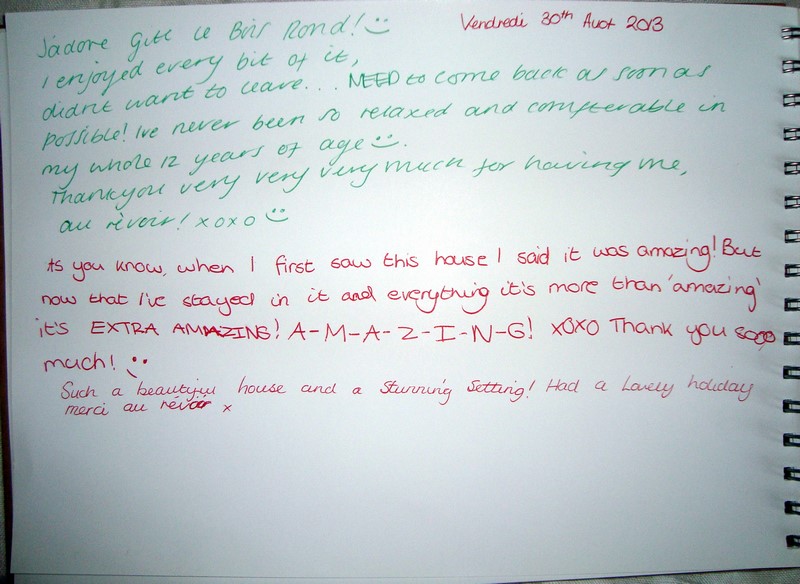 Vendredi 30th Auot 2013
J'adore Gite le Bois Rond! :)
I enjoyed every bit of it,
didn't want to leave... NEED to come back as soon as
possible! Ive never been so relaxed and comfterable in
my whole 12 years of age :).
Thankyou very very very much for having me,
au rèvoir! xoxo :)
As you know, when I first saw this house I said it was amazing! But
now that I've stayed in it and everything it's more than 'amazing'
it's EXTRA AMAZING! A-M-A-Z-I-N-G! xoxo Thank you sooo
much! :)
Such a beautiful house and a Stunning Setting! Had a Lovely holiday
merci au révoir x